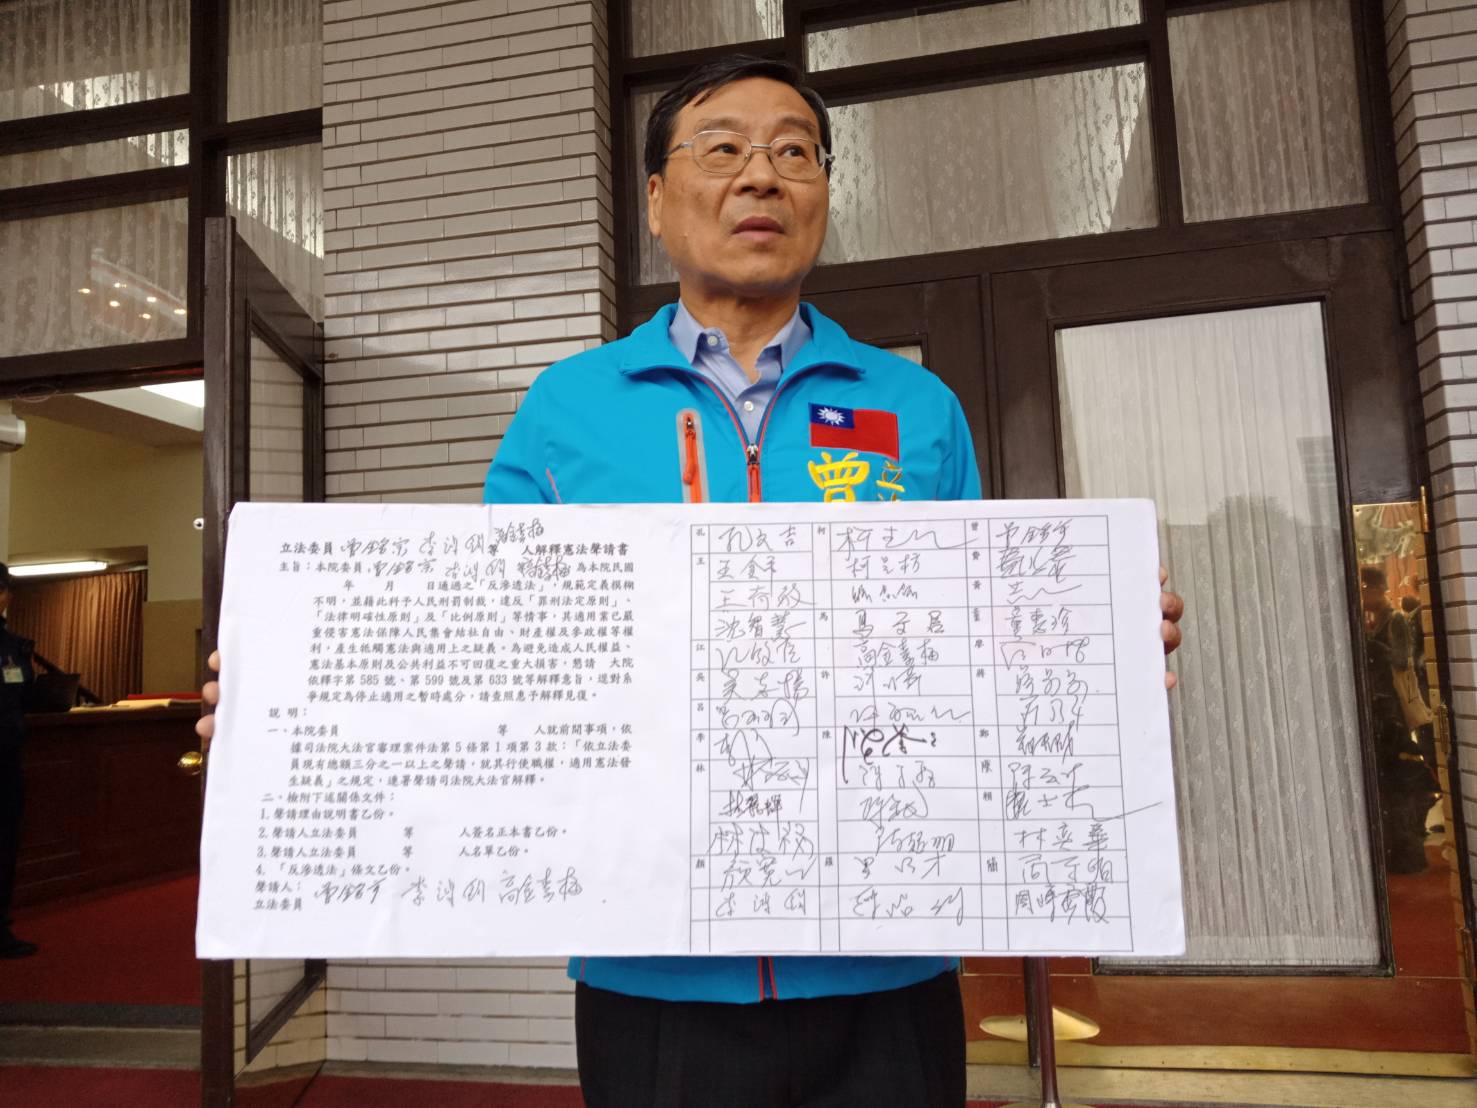 曾
立
立法委員 曾銘宗 李鴻鈞 高金素梅 等 人解釋憲法聲請書
主旨：本院委員 曾銘宗 李鴻鈞 高金素梅 為本院民國
年 月 日通過之「反滲透法」，規範定義模糊
不明，並藉此科予人民刑罰制裁，違反「罪刑法定原則」、
「法律明確性原則」及「比例原則」等情事，其適用業已嚴
重侵害憲法保障人民集會結社自由、財產權及參政權等權
利，產生牴觸憲法與適用上之疑義。為避免造成人民權益、
憲法基本原則及公共利益不可回復之重大損害，懇請 大院
依釋字第 585 號、第 599 號及第 633 號等解釋意旨，逕對系
爭規定為停止適用之暫時處分，請查照惠予解釋見復。
說 明：
一、本院委員 等 人就前開事項，依
據司法院大法官審理案件法第 5 條第 1 項第 3 款：「依立法委
員現有總額三分之一以上之聲請，就其行使職權，適用憲法發
生疑義」之規定，連署聲請司法院大法官解釋。
二、檢附下述關係文件：
1.聲請理由說明書乙份。
2.聲請人立法委員 等 人簽名正本書乙份。
3.聲請人立法委員 等 人名單乙份。
4.「反滲透法」條文乙份。
聲請人：
立法委員 曾銘宗 李鴻鈞 高金素梅
孔 孔文吉 柯 柯志恩 曾 曾銘宗
王 王金平 柯呈枋 費
王育敏 黃
沈智慧 馬 童 童惠珍
江 江啟臣 高金素梅 廖
吳 吳志揚 許 蔣
呂
李 陳 鄭
林 陳
賴 賴士葆
林奕華
顏 顏寬恒 羅 羅明才 簡
李鴻鈞 周陳秀霞